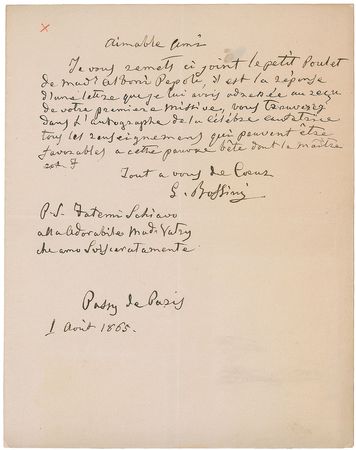 Aimable Ami
Je vous remets ci joint le petit Poulet
de Mad.e Alboni Pepoli, il est la réponse
d'une lettre que je lui avois adressée au reçu
de votre premiere Missive, vous trouverez
dans l'autographe de la Célèbre Cantatrice
tous les renseignements qui peuvent être
favorables a cette pauvre bête dont le maître
est
Tout a vous de Coeur
G. Rossini
P.S. Fatemi Schiavo
alla Adorabile Mad. Vatry
che amo Svisceratamente
Passy de Paris
1 Août 1865.